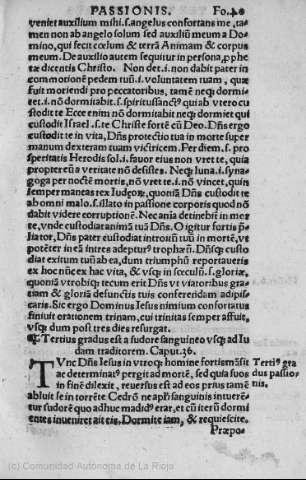 PASSIONIS. Fo.40
veniet auxilium mihi.s.angelus confortans me, ta=
men non ab angelo solum sed auxiliũ meum a Do=
mino, qui fecit cœlum & terrã Animam & corpus
meum. De auxilio autem sequitur in persona, pphe
tæ dicentis Christo. Non det.i. non dabit pater in
commotionẽ pedem tuũ.i. voluntatem tuam, quæ
fuit moriendi pro peccatoribus, tamẽ neqʒ dormi=
et.i nõ dormitabit.s.spiritussanctꝰ quia ab vtero cu
stodit te Ecce enim nõ dormitabit neqʒ dormiet qui
custodit Israel.s te Christe fortẽ cũ Deo. Dñs ergo
custodit te in vita, Dñs protectio tua in morte super
manum dexteram tuam victricem. Per diem.s. pro
speritatis Herodis sol.i.fauor eius non vret te, quia
propter eũ a veritate nõ desistes. Neqʒ luna.i.syna=
goga per noctẽ mortis, nõ vret te.i. nõ vincet, quin
semper maneas rex Iudęorȝ, quoniã Dñs custodit te
ab omni malo.s.illato in passione corporis quod nõ
dabit videre corruptionẽ. Nec aĩa detinebit̃ in mor
te, vnde custodiat animã tuã Dñs. O igitur fortis p̃
liator, Dñs pater custodiat introitũ tuũ in mortẽ, vt
potẽter in eã intres adeptur⁹ trophæũ. Dñsqʒ custo
diat exitum tuũ ab ea, dum triumphũ reportaueris
ex hoc nũc ex hac vita, & vsqʒ in sæculũ.s.gloriæ,
quoniã vtrobiqʒ tecum erit Dñs vt viatoribus gra=
tiam & gloriã defunctis tuis conferendam adipis=
caris. Sic ergo Dominus Iesus nimium confortatus
finiuit orationem trinam, cui trinitas semper affuit,
vsqʒ dum post tres dies resurgat.
¶ Tertius gradus est a sudore sanguineo vsqʒ ad Iu
dam traditorem. Caput.36.
TVnc Dñs Iesus in vtroqʒ homine fortis m̃ sit
ac determinat⁹ pergit ad mortẽ, sed quia suos
in finẽ dilexit, reuersus est ad eos prius tamẽ
abluit se in torrẽte Cedrõ ne apl̃i sanguinis intueren
tur sudorẽ quo adhuc madid⁹ erat, et cũ iterũ dormi
entes inueniret ait eis. Dormite iam, & requiescite.
Præpo-
Terti⁹ gra
dus passio
nis.
(c) Comunidad Autónoma de La Rioja